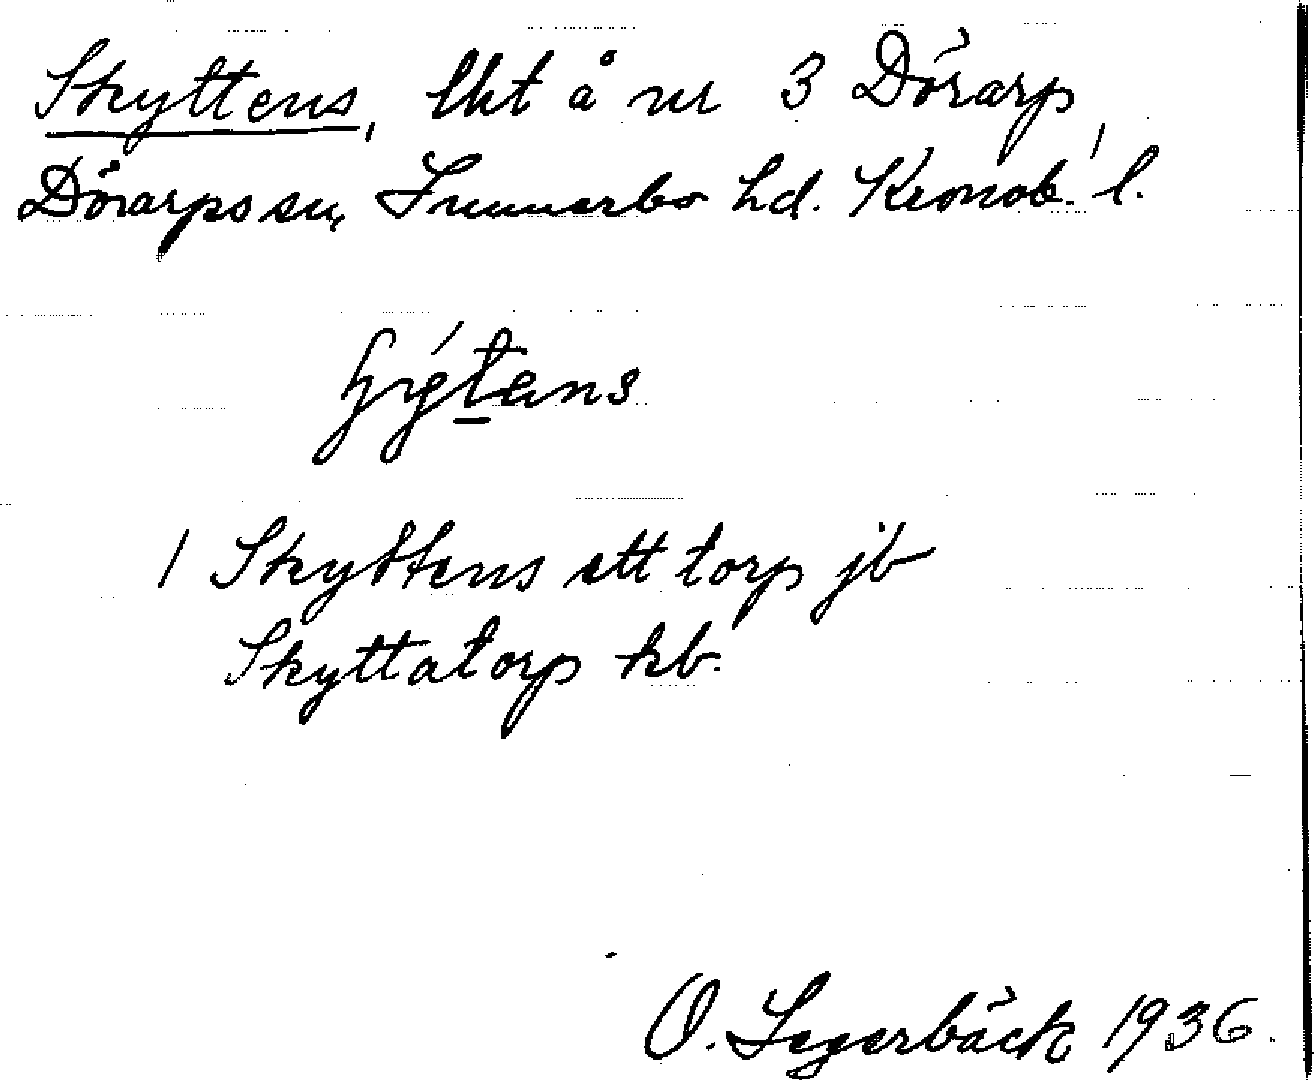 Skyttens, lht å nr 3 Dörarp,
Dörarps sn, Sunnerbo hd. Kronob. l.
1 Skyttens ett torp jb
Skyttatorp kb.
O. Segerbäck 1936.